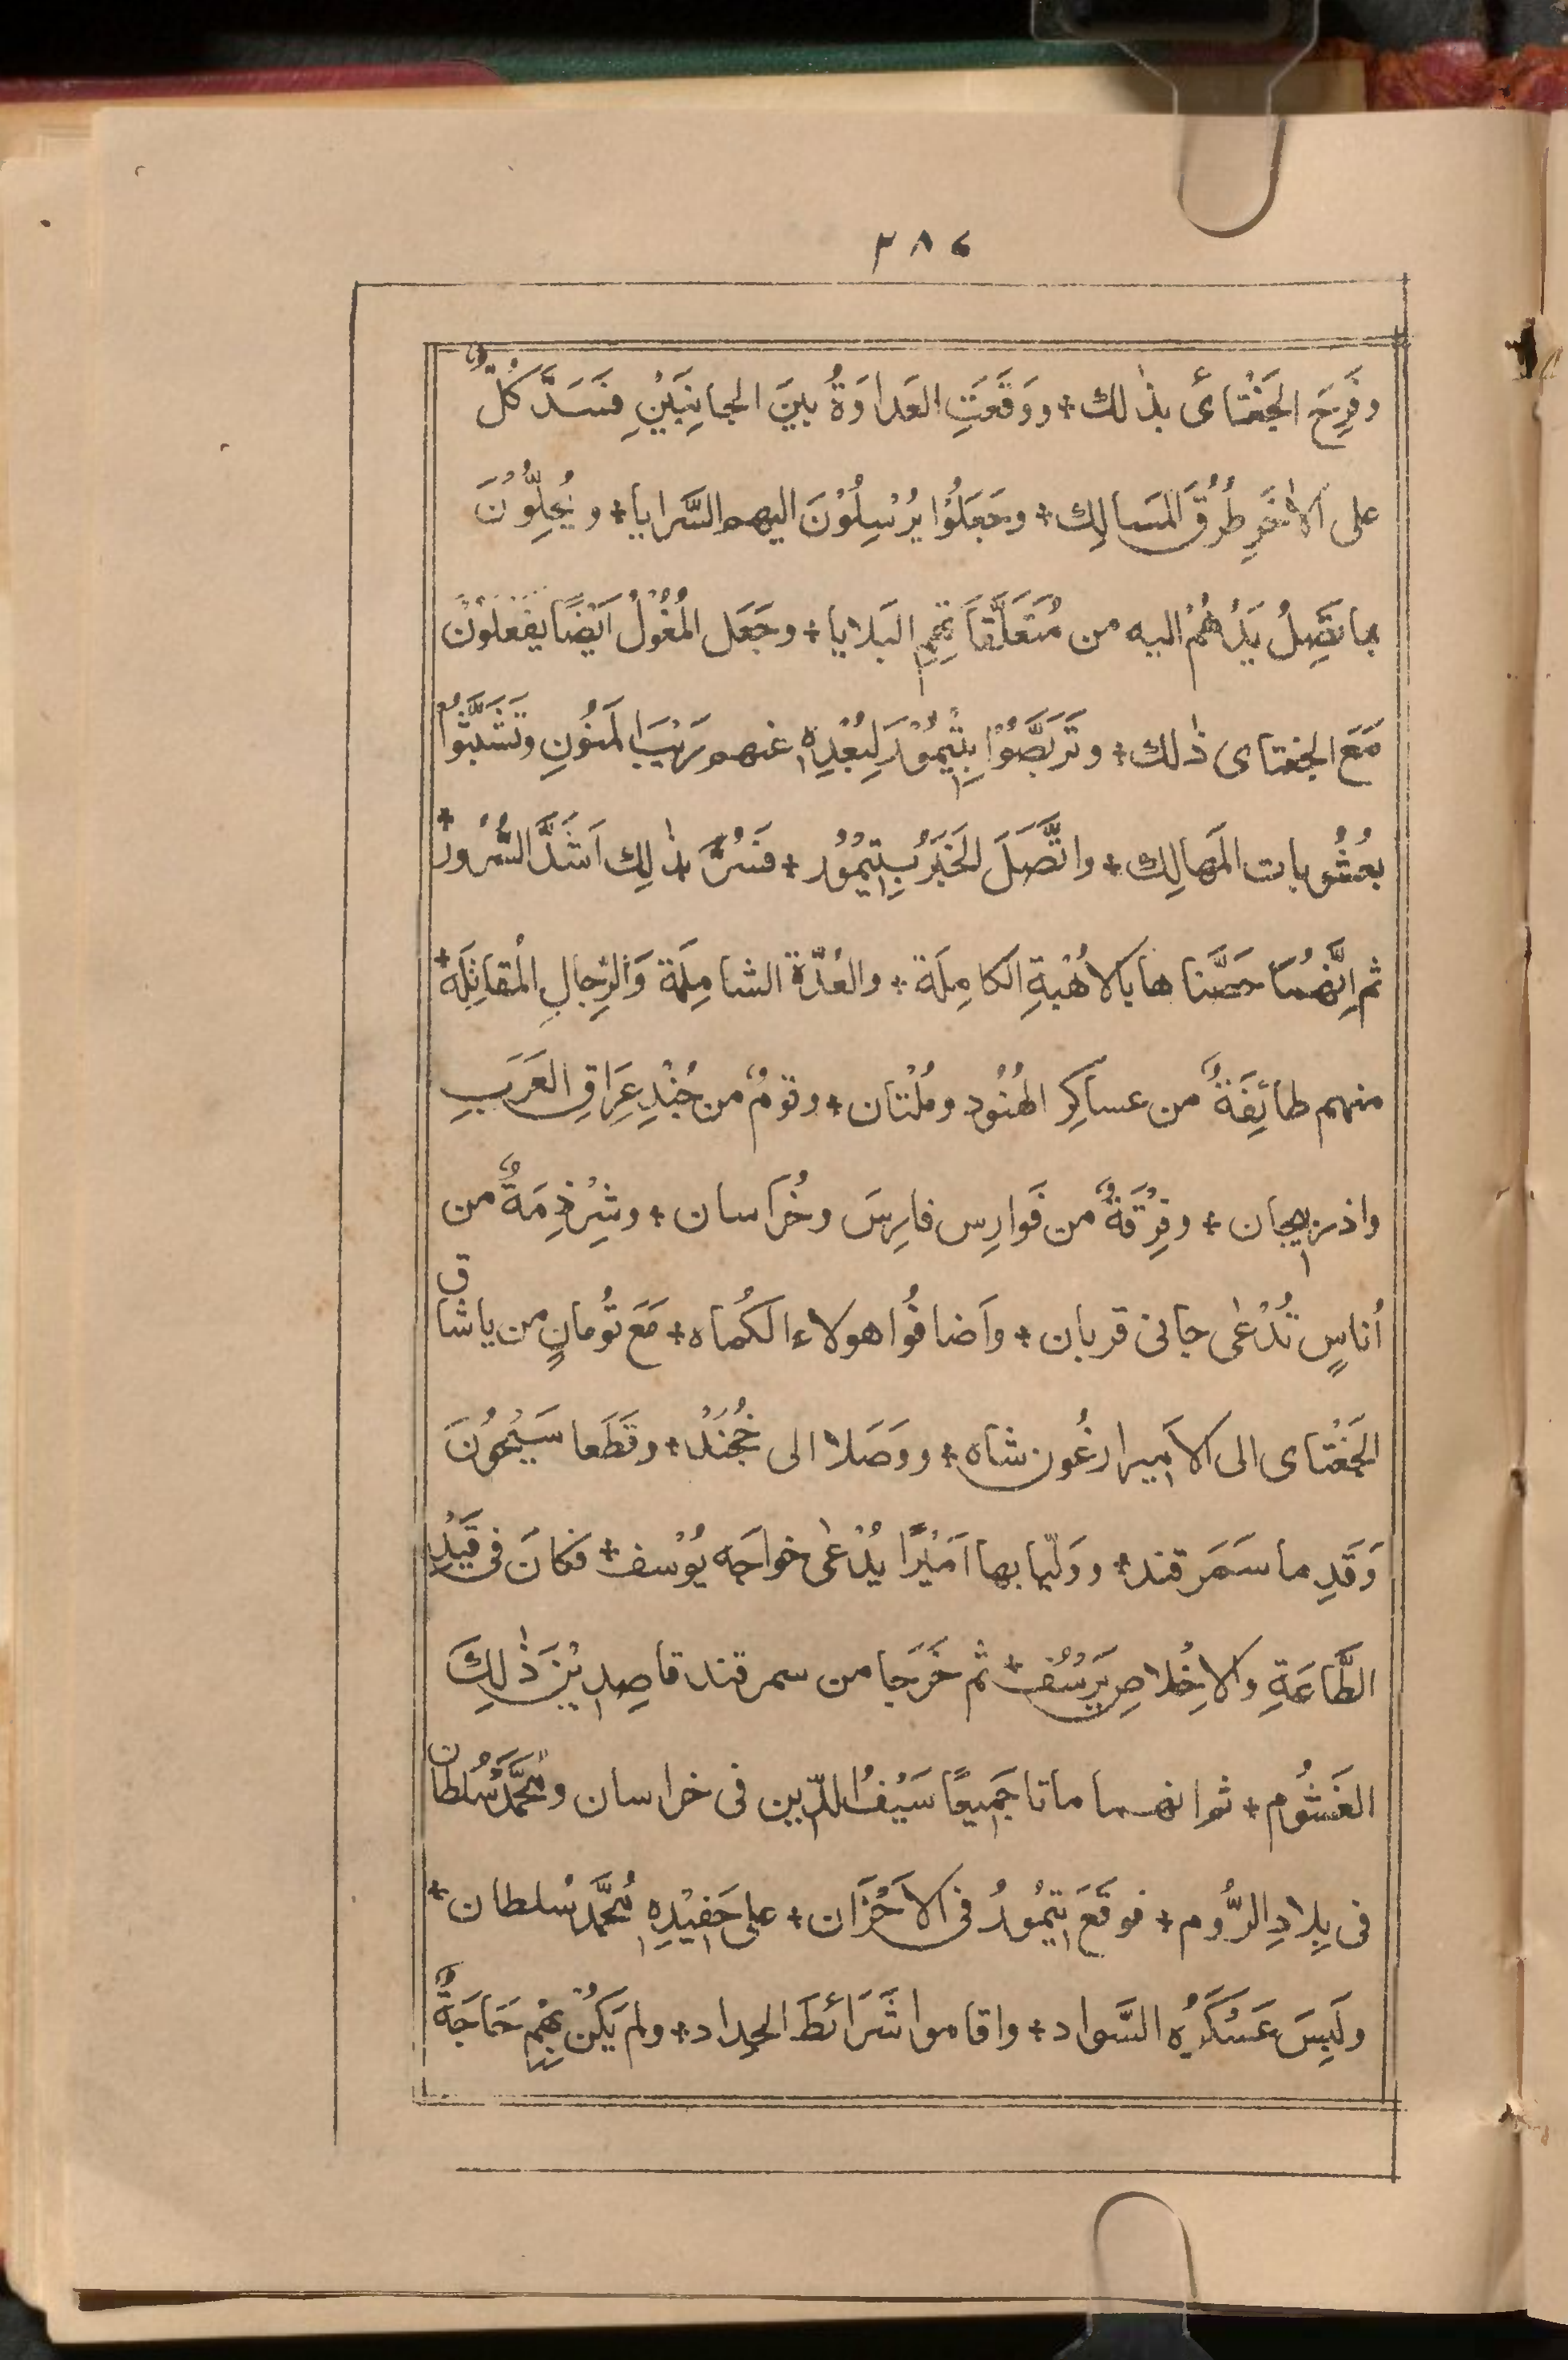 ٣٨٤
وفَرِحَ الجَغْتائ بذٰلك + ووَقَعَتِ العَداوَةُ بينَ الجانِبَيْنِ فسَدَّ كُلٌّ
على الاٰخَرِ طُرُقَ المَسالِك + وجَعَلُوْا يُرْسِلُوْنَ اليهم السَّرايا + ويُحِلُّوْنَ
بما تَصِلُ يَدُهُمْ اليه من مُتَعَلَّقاتِهِمِ البَلايا + وجَعَل المُغُوْلُ اَيْضًا يفعلون
مَعَ الجغتاى ذٰلك + وتَرَبَّصُوْا بِتِيْمُوْرَ لِبُعْدِهٖ عنهم رَيْبَ المَنُونِ وتَشَبَّثُوا
بعُشُوبات المَهالِك + واتَّصَلَ الخَبَرُ بِتِيْمُوْر + فسُرَّ بذٰلِك اَشَدَّ السُّرُور +
ثم اِنَّهُما حَصَّناها بالاُهْبَةِ الكامِلَة + والعُدَّة الشامِلَة وَالرِّجالِ المُقاتِلَة +
منهم طائِفَةٌ من عساكِر الهُنُود ومُلْتان + وقومٌ من جُنْدِ عِرَاقِ العَرَبِ
واذربيجان + وفِرْقَةٌ من فَوارِس فارِسَ وخُرَاسان + وشِرْذِمَةٌ من
اُناسٍ تُدْعٰى جانى قربان + وَاَضافُوا هولاء الكُماه + مَعَ تُومانٍ من ياشاق
الجَغْتاى الى الاَمير ارغُون شاه + ووَصَلا الى خُجُنْد + وقَطَعا سَيْحُونَ
وَقَدِما سَمَرقند + ووَلّيا بها اَمِيْرًا يُدْعٰى خواجَه يُوْسف + فكانَ فى قَيْدِ
الطَّاعَةِ والاِخْلاصِ يَرْسُف + ثم خَرَجا من سمرقند قاصِدِيْنَ ذٰلِكَ
الغَشُوم + ثم انهما ماتا جَمِيعًا سَيْفُ الدّين فى خراسان ومُحَمَّد سُلطان
فى بِلادِ الرُّوم + فوقَعَ تِيْمُورُ فى الاَحْزَان + على حَفِيْدِهٖ مُحَمَّد سُلطان +
ولَبِسَ عَسْكَرُه السَّواد + واقاموا شَرَائطَ الحِداد + ولم يَكُنْ بِهِمْ حَاجَةٌ